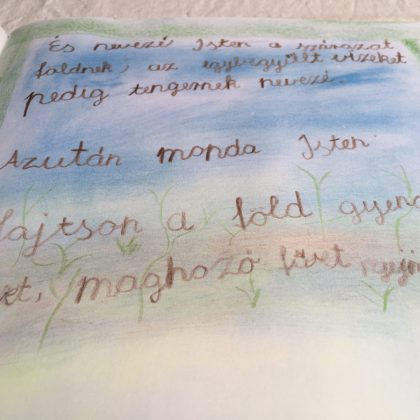 És nevezé Isten a szárazat
földnek; az egybegyűlt vizeket
pedig tengernek nevezé.
Azután monda Isten
hajtson a föld gyenge
maghozó füvet